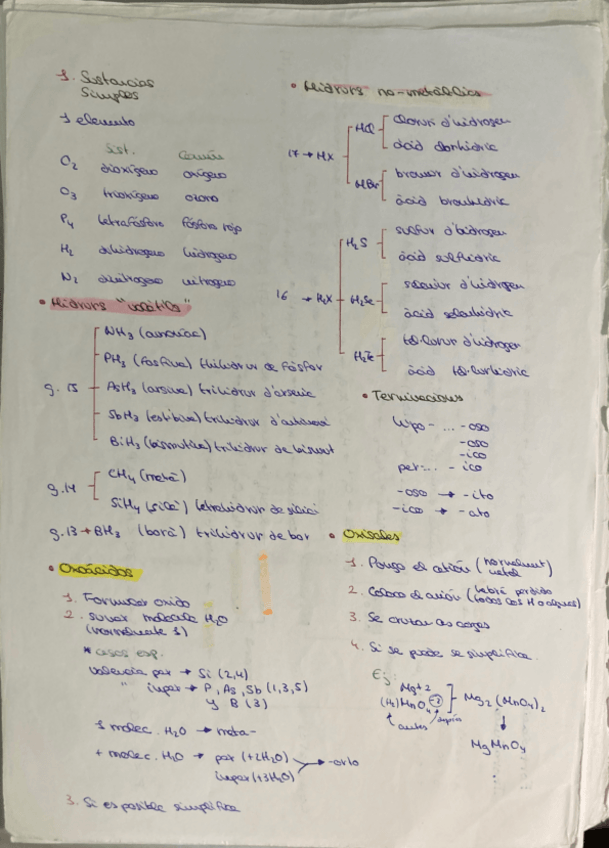 1. Sustancias
Simples
1 elemento
Sist. Común
O2 dioxígeno oxígeno
O3 trioxígeno ozono
P4 tetrafósforo fósforo rojo
H2 dihidrógeno hidrógeno
N2 dinitrógeno nitrógeno
• Hidrurs "volátils"
g. 15
NH3 (amoníac)
PH3 (fosfina) trihidrur de fósfor
AsH3 (arsina) trihidrur d'arsènic
SbH3 (estibina) trihidrur d'antimoni
BiH3 (bismutina) trihidrur de bismut
g.14
CH4 (metà)
SiH4 (silà) tetrahidrur de silici
g.13 → BH3 (borà) trihidrur de bor
• Oxoácidos
1. Formular óxido
2. sumar molécula H2O
(normalmente 1)
* casos esp.
valencia par → Si (2,4)
" impar → P, As, Sb (1,3,5)
y B (3)
1 molec. H2O → meta-
+ molec. H2O → par (+2H2O)
impar (+3H2O)
→ -orto
3. Si es posible simplifica
• Hidrurs no-metàl·lics
17 → HX
HCl
clorur d'hidrogen
àcid clorhídric
HBr
bromur d'hidrogen
àcid bromhídric
16 → H2X
H2S
sulfur d'hidrogen
àcid sulfhídric
H2Se
seleniur d'hidrogen
àcid selenhídric
H2Te
tel·lurur d'hidrogen
àcid tel·lurhídric
• Terminacions
hipo- ... -oso
-oso
-ico
per-... -ico
-oso → -ito
-ico → -ato
• Oxisales
1. Pongo el catión (normalment metal)
2. Coloco el anión (habrá perdido todos los H o algunos)
3. Se cruzan las cargas
4. Si se puede se simplifica.
Ej:
Mg+2
(H2)MnO4 -2
antes después
Mg2(MnO4)2
MgMnO4